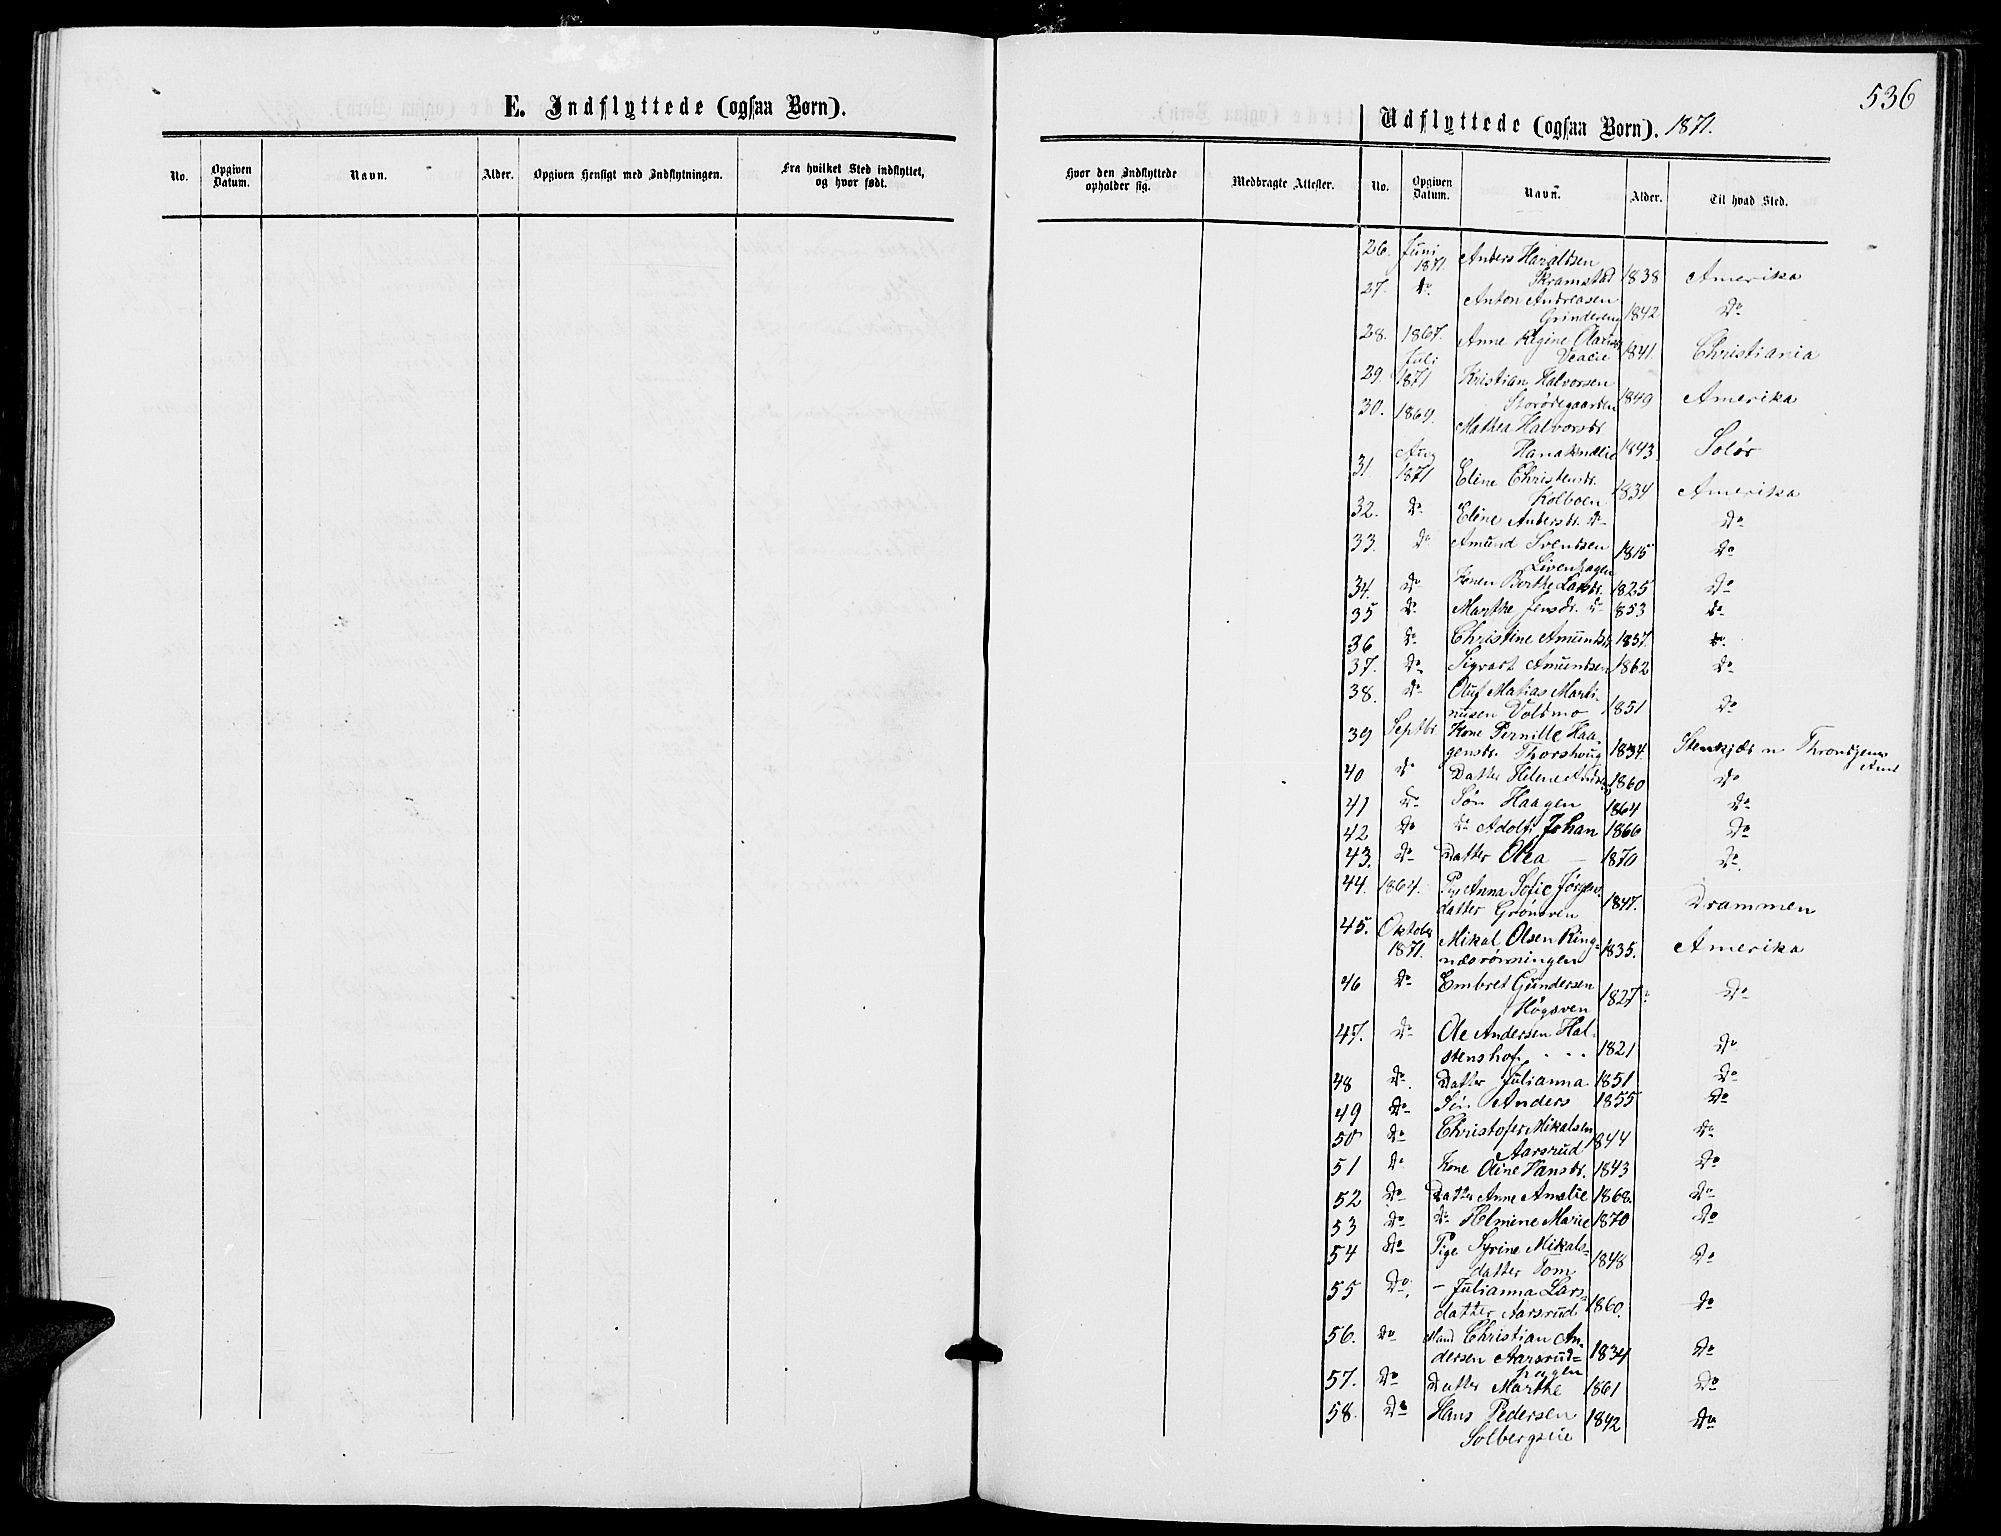 E. Indflyttede (ogsaa Børn).
No. Opgiven Datum. Navn. Alder. Opgiven Hensigt med Indflytningen. Fra hvilket Sted indflyttet, og hvor født.
536
Udflyttede (ogsaa Børn). 1871.
Hvor den Indflyttede opholder sig. Medbragte Attester. No. Opgiven Datum. Navn. Alder. Til hvad Sted.
26. Juni 1871. Anders Haraldsen
Skramstad 1838 Amerika
27. do. Anton Andreasen
Grindereng 1842 Do
28. 1867. Anne Regine Olausdr
1841. Christiania
29. Juli 1871 Kristian Halvorsen
Storødegaarden 1849 Amerika
30. 1869. Mathea Halvorsdr.
1843. Solør
31 Aug 1871 Eline Christensdr.
Kolboen 1834 Amerika
32. Do Eline Andersdr. Do Do
33. Do Amund Svendsen
Livenhagen 1815 Do
34. Do Konen Berthe Larsdr. 1825 Do
35 Do Marthe Jensdr. Do 1853 do
36 Do Christine Amundsdr. 1857. do
37. Do Sigvart Amundsen 1862 Do
38. Do Oluf Matias Marti-
nusen Voldmo 1851 Do
39 Septbr Kone Pernille Haa-
gensdr. Thorshoug 1834. Stenkjær n Throndhjems Amt
40 Do Datter Helene 1860 Do
41 Do Søn Haagen 1864 Do
42 Do Do Adolf Johan 1866 Do
43. Do Datter Olea 1870 Do.
44. 1864. Pig Anna Sofie Jørgens-
datter Grønsven 1847. Drammen
45. Oktober 1871. Mikal Olsen Ring-
nesrønningen 1835. Amerika
46 Do Embret Gundersen
Høgsven 1827. Do
47. Do Ole Andersen Hal-
stenshof 1821 Do
48 Do. Datter Julianna 1851 Do
49 Do Søn Anders 1855 Do
50 Do Christofer Mikalsen
Aarsrud 1844 Do
51 Do Kone Oline Hansdr. 1843 Do
52 Do Datter Anne Amalie 1868. Do
53 Do Do Helmine Marie 1870 Do
54 Do Pige Syrine Mikals-
datter Tom 1848 Do
55 Do. - Julianna Lars-
datter Aarsrud 1860. Do
56. Do Mand Christian An-
dersen Aarsrud-
hagen 1834 Do
57. Do Datter Marthe 1861 Do
58. Do Hans Pedersen
Solbergseie 1842 Do